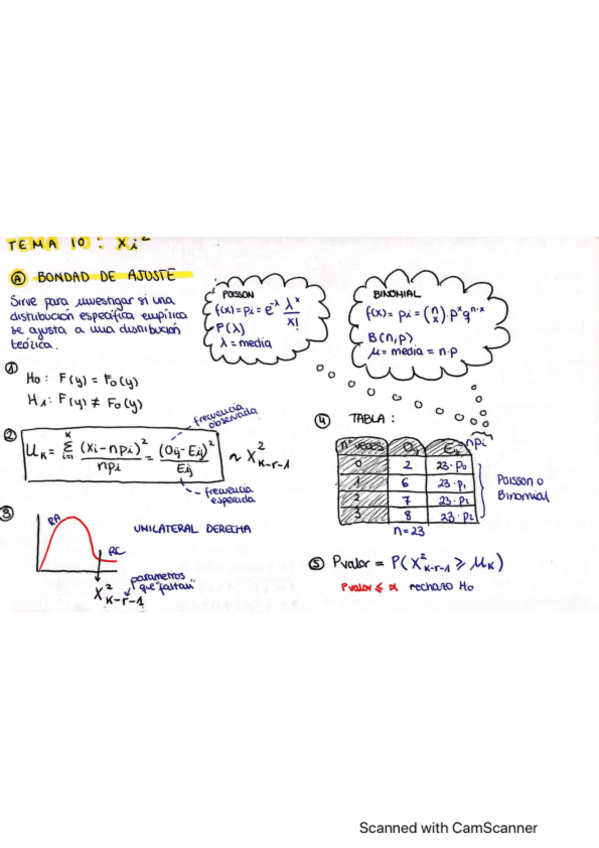 TEMA 10: Xi²
Ⓐ BONDAD DE AJUSTE
Sirve para investigar si una
distribución específica empírica
se ajusta a una distribución
teórica.
POISSON
f(x) = pi = e^-λ λ^x / x!
P(λ)
λ = media
BINOMIAL
f(x) = pi = (n x) · p^x q^n-x
B(n,p)
μ = media = n·p
①
H0: F(y) = F0(y)
H1: F(y) ≠ F0(y)
②
frecuencia
observada
UK = Σ (i=1, K) (Xi - npi)² / npi = (Oij - Eij)² / Eij ~ X²K-r-1
frecuencia
esperada
③
RA
RC
UNILATERAL DERECHA
X²K-r-1
parametros
que "faltan"
④ TABLA:
nº veces Oij Eij npi
0 2 23·p0
1 6 23·p1
2 7 23·p2
3 8 23·p2
n=23
Poisson o
Binomial
⑤ Pvalor = P(X²K-r-1 ⩾ μK)
Pvalor ⩽ α rechazo H0
Scanned with CamScanner